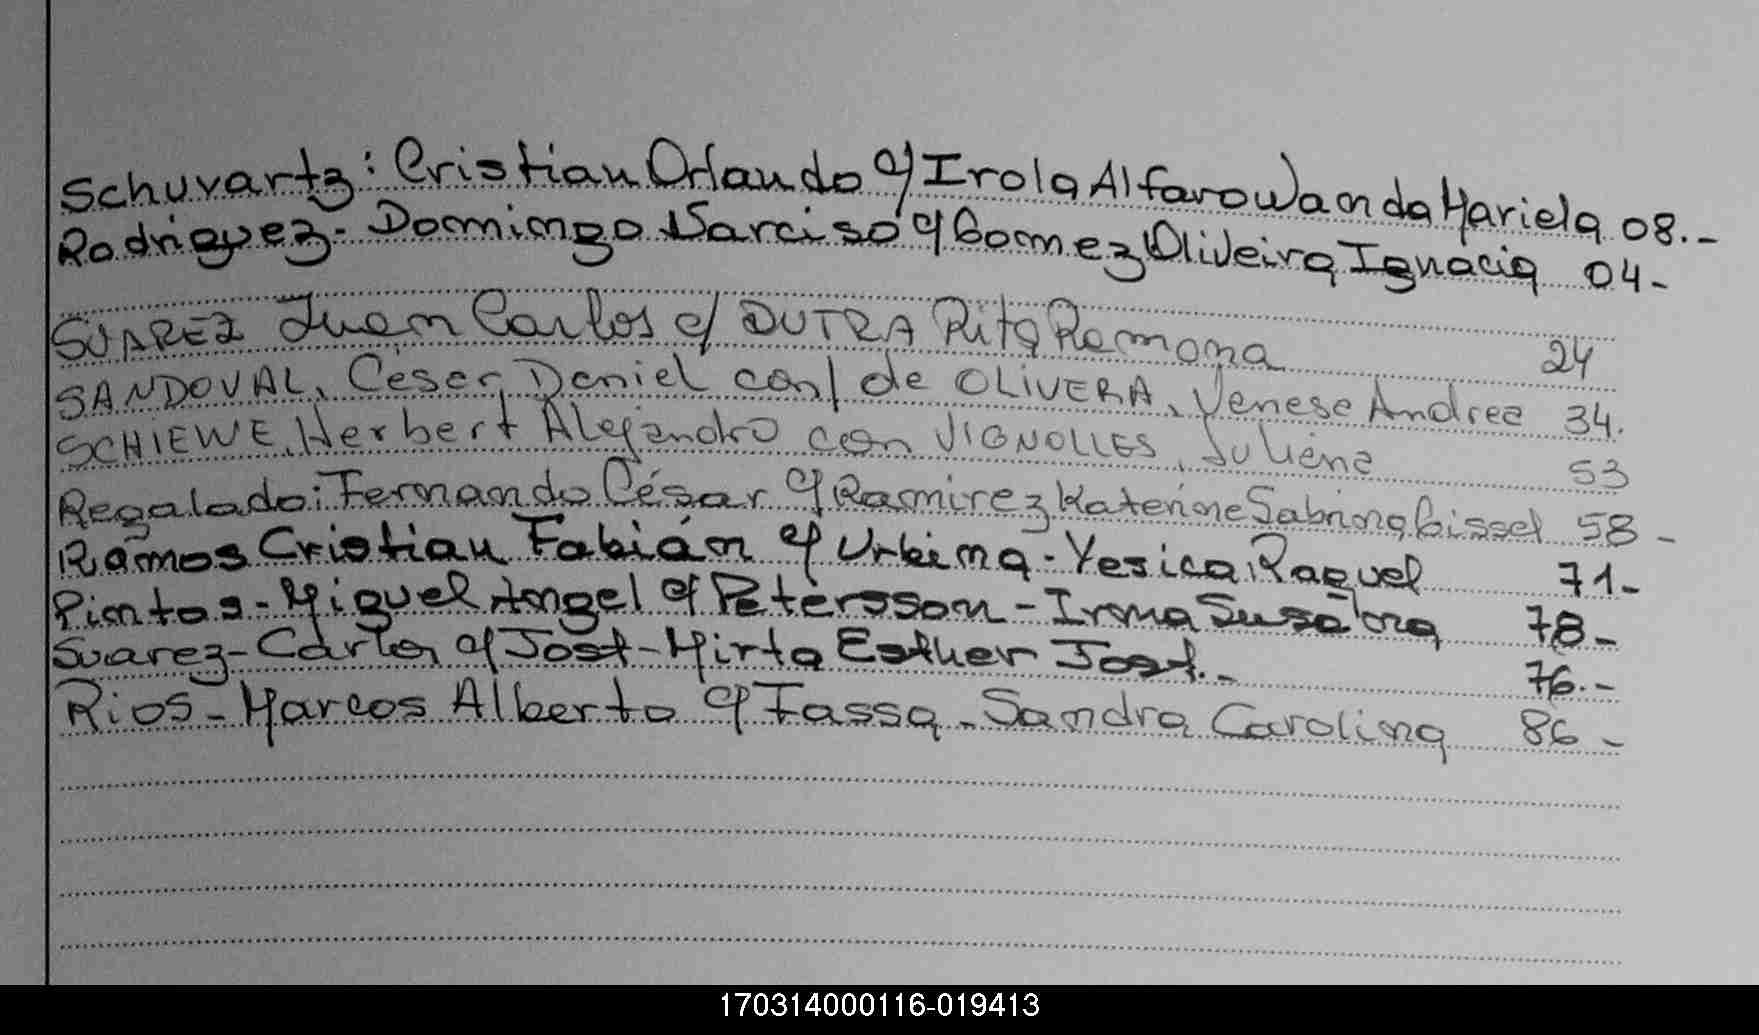 Schuvartz: Cristian Orlando c/ Irola Alfaro Wanda Mariela 08.-
Rodriguez - Domingo Narciso c/ Gomez Oliveira Ignacia 04-
SUAREZ Juan Carlos c/ DUTRA Rita Ramona 24
SANDOVAL, César Daniel con/ de OLIVERA, Vanesa Andrea 34.
SCHIEWE, Herbert Alejandro con VIGNOLLES, Juliana 53
Regalado: Fernando César c/ Ramirez Katerine Sabrina Gissel 58-
Ramos Cristian Fabián c/ Urbina - Yesica Raquel 71-
Pintos - Miguel Angel c/ Petersson - Irma Susana 78-
Suarez - Carlos c/ Jost - Mirta Esther Jost.- 76.-
Rios - Marcos Alberto c/ Fassa - Sandra Carolina 86-
170314000116-019413